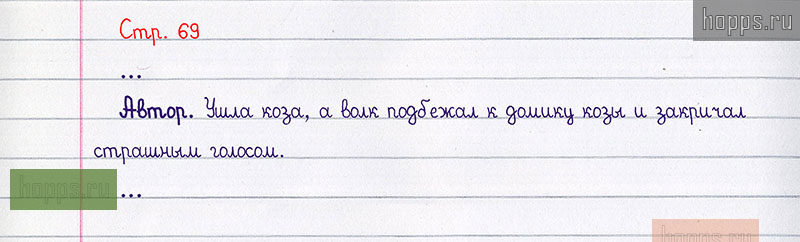 hopps.ru
Стр. 69
...
Автор. Ушла коза, а волк подбежал к домику козы и закричал
страшным голосом.
hopps.ru
...
hopps.ru